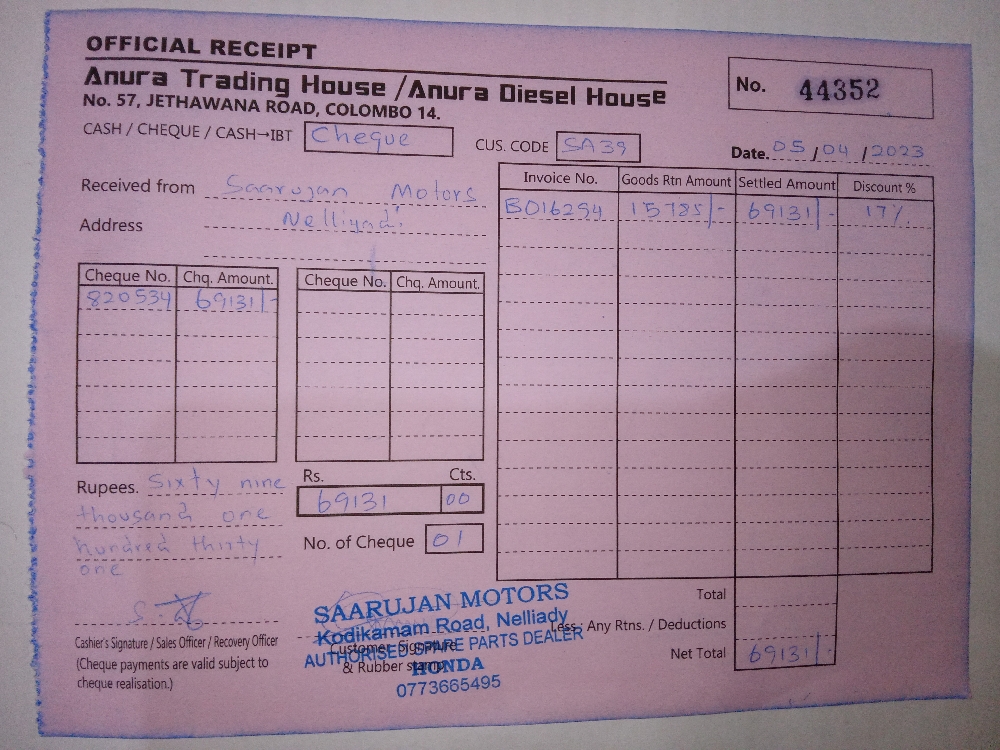 OFFICIAL RECEIPT
Anura Trading House /Anura Diesel House
No. 57, JETHAWANA ROAD, COLOMBO 14.
No. 44352
CASH / CHEQUE / CASH→IBT Cheque
CUS. CODE SA39
Date. 05 /04 /2023
Received from Saarujan Motors
Address Nelliyadi
Invoice No. Goods Rtn Amount Settled Amount Discount %
B016294 15785/- 69131/- 17%
Cheque No. Chq. Amount. Cheque No. Chq. Amount.
820534 69131/-
Rupees. Sixty nine
thousand one
hundred thirty
one
Rs. Cts.
69131 00
No. of Cheque 01
Cashier's Signature / Sales Officer / Recovery Officer
(Cheque payments are valid subject to
cheque realisation.)
SAARUJAN MOTORS
Kodikamam Road, Nelliady
AUTHORISED SPARE PARTS DEALER
HONDA
0773665495
Customer Signature
& Rubber stamp
Total
Less : Any Rtns. / Deductions
Net Total 69131/-